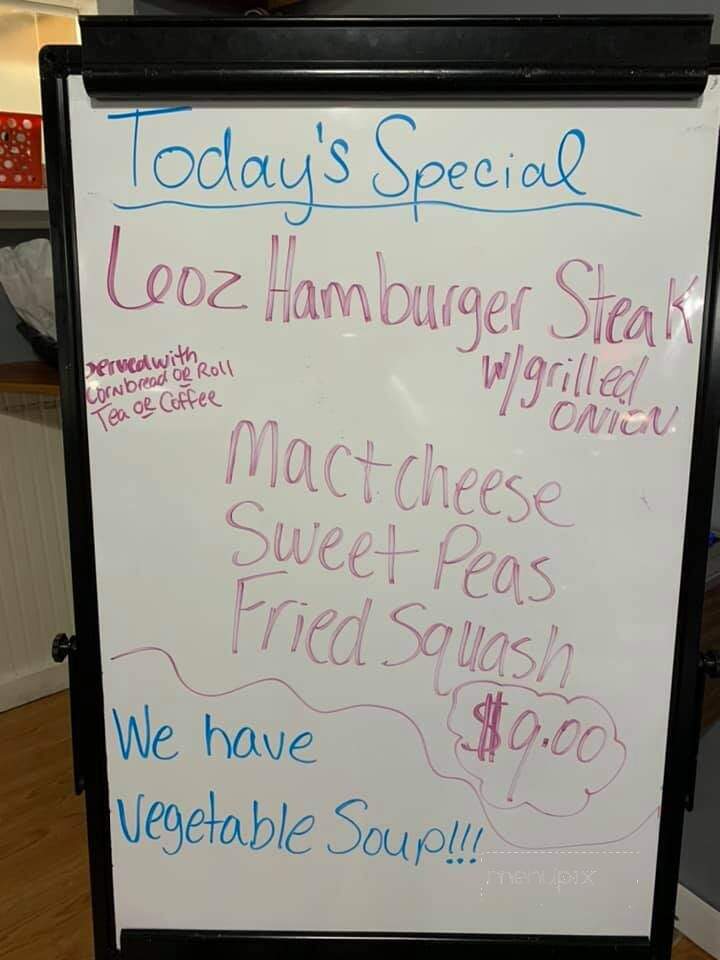 Today's Special
6oz Hamburger Steak
w/grilled
onion
Served with
Cornbread or Roll
Tea or Coffee
Mac+cheese
Sweet Peas
Fried Squash
$9.00
We have
Vegetable Soup!!!
menupix